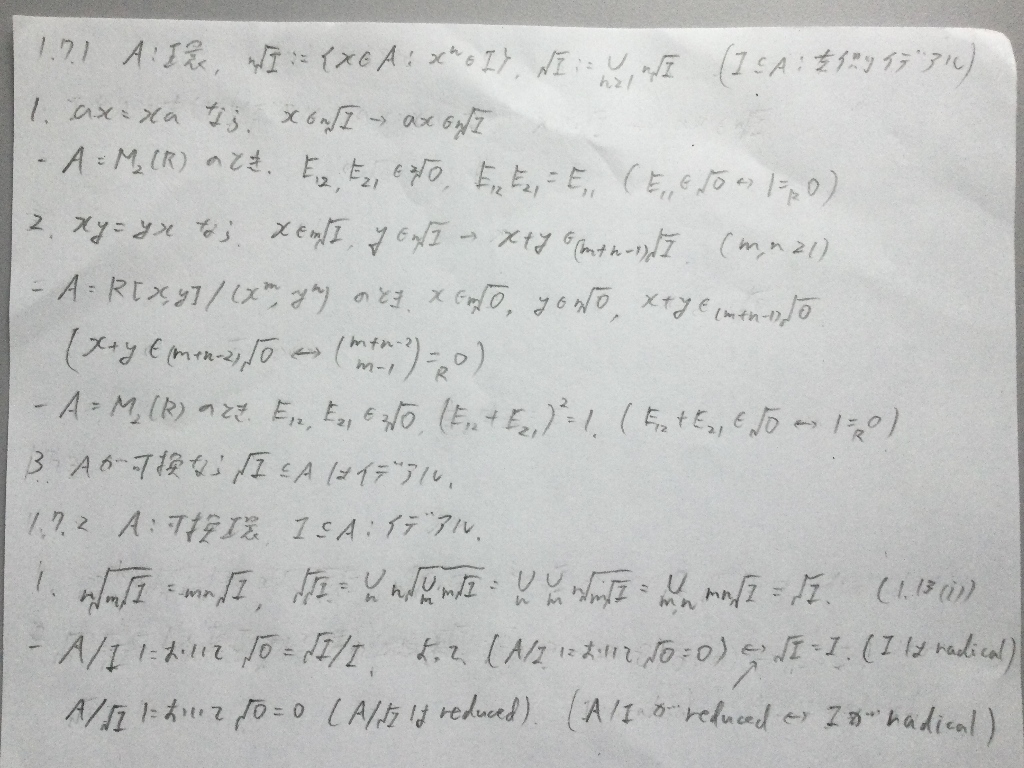 1.7.1 A:環, ⁿ√I := {x∈A : xⁿ∈I}, √I := ∪_{n≥1} ⁿ√I (I⊆A: イデアル)
1. ax=xa なら x∈ⁿ√I → ax∈ⁿ√I
- A=M₂(R) のとき. E₁₂, E₂₁ ∈ ²√0, E₁₂E₂₁=E₁₁ (E₁₁∈√0 ↔ 1=_R 0)
2. xy=yx なら x∈ᵐ√I, y∈ⁿ√I → x+y ∈ ⁽ᵐ⁺ⁿ⁻¹⁾√I (m,n≥1)
- A=R[x,y]/(xᵐ,yⁿ) のとき x∈ᵐ√0, y∈ⁿ√0, x+y∈⁽ᵐ⁺ⁿ⁻¹⁾√0
(x+y∈⁽ᵐ⁺ⁿ⁻²⁾√0 ↔ (m+n-2 m-1) =_R 0)
- A=M₂(R) のとき E₁₂, E₂₁ ∈ ²√0, (E₁₂+E₂₁)²=1. (E₁₂+E₂₁∈√0 ↔ 1=_R 0)
3. Aが可換なら √I⊆A はイデアル.
1.7.2 A:可換環 I⊆A:イデアル.
1. ⁿ√(ᵐ√I) = ᵐⁿ√I, √√I = ∪_n ⁿ√(∪_m ᵐ√I) = ∪_n ∪_m ⁿ√(ᵐ√I) = ∪_{m,n} ᵐⁿ√I = √I. (1.13(ii))
- A/I において √0=√I/I. よって (A/I において √0=0) ↔ √I=I. (I は radical)
A/√I において √0=0 (A/√I は reduced). (A/I が reduced ↔ I が radical)